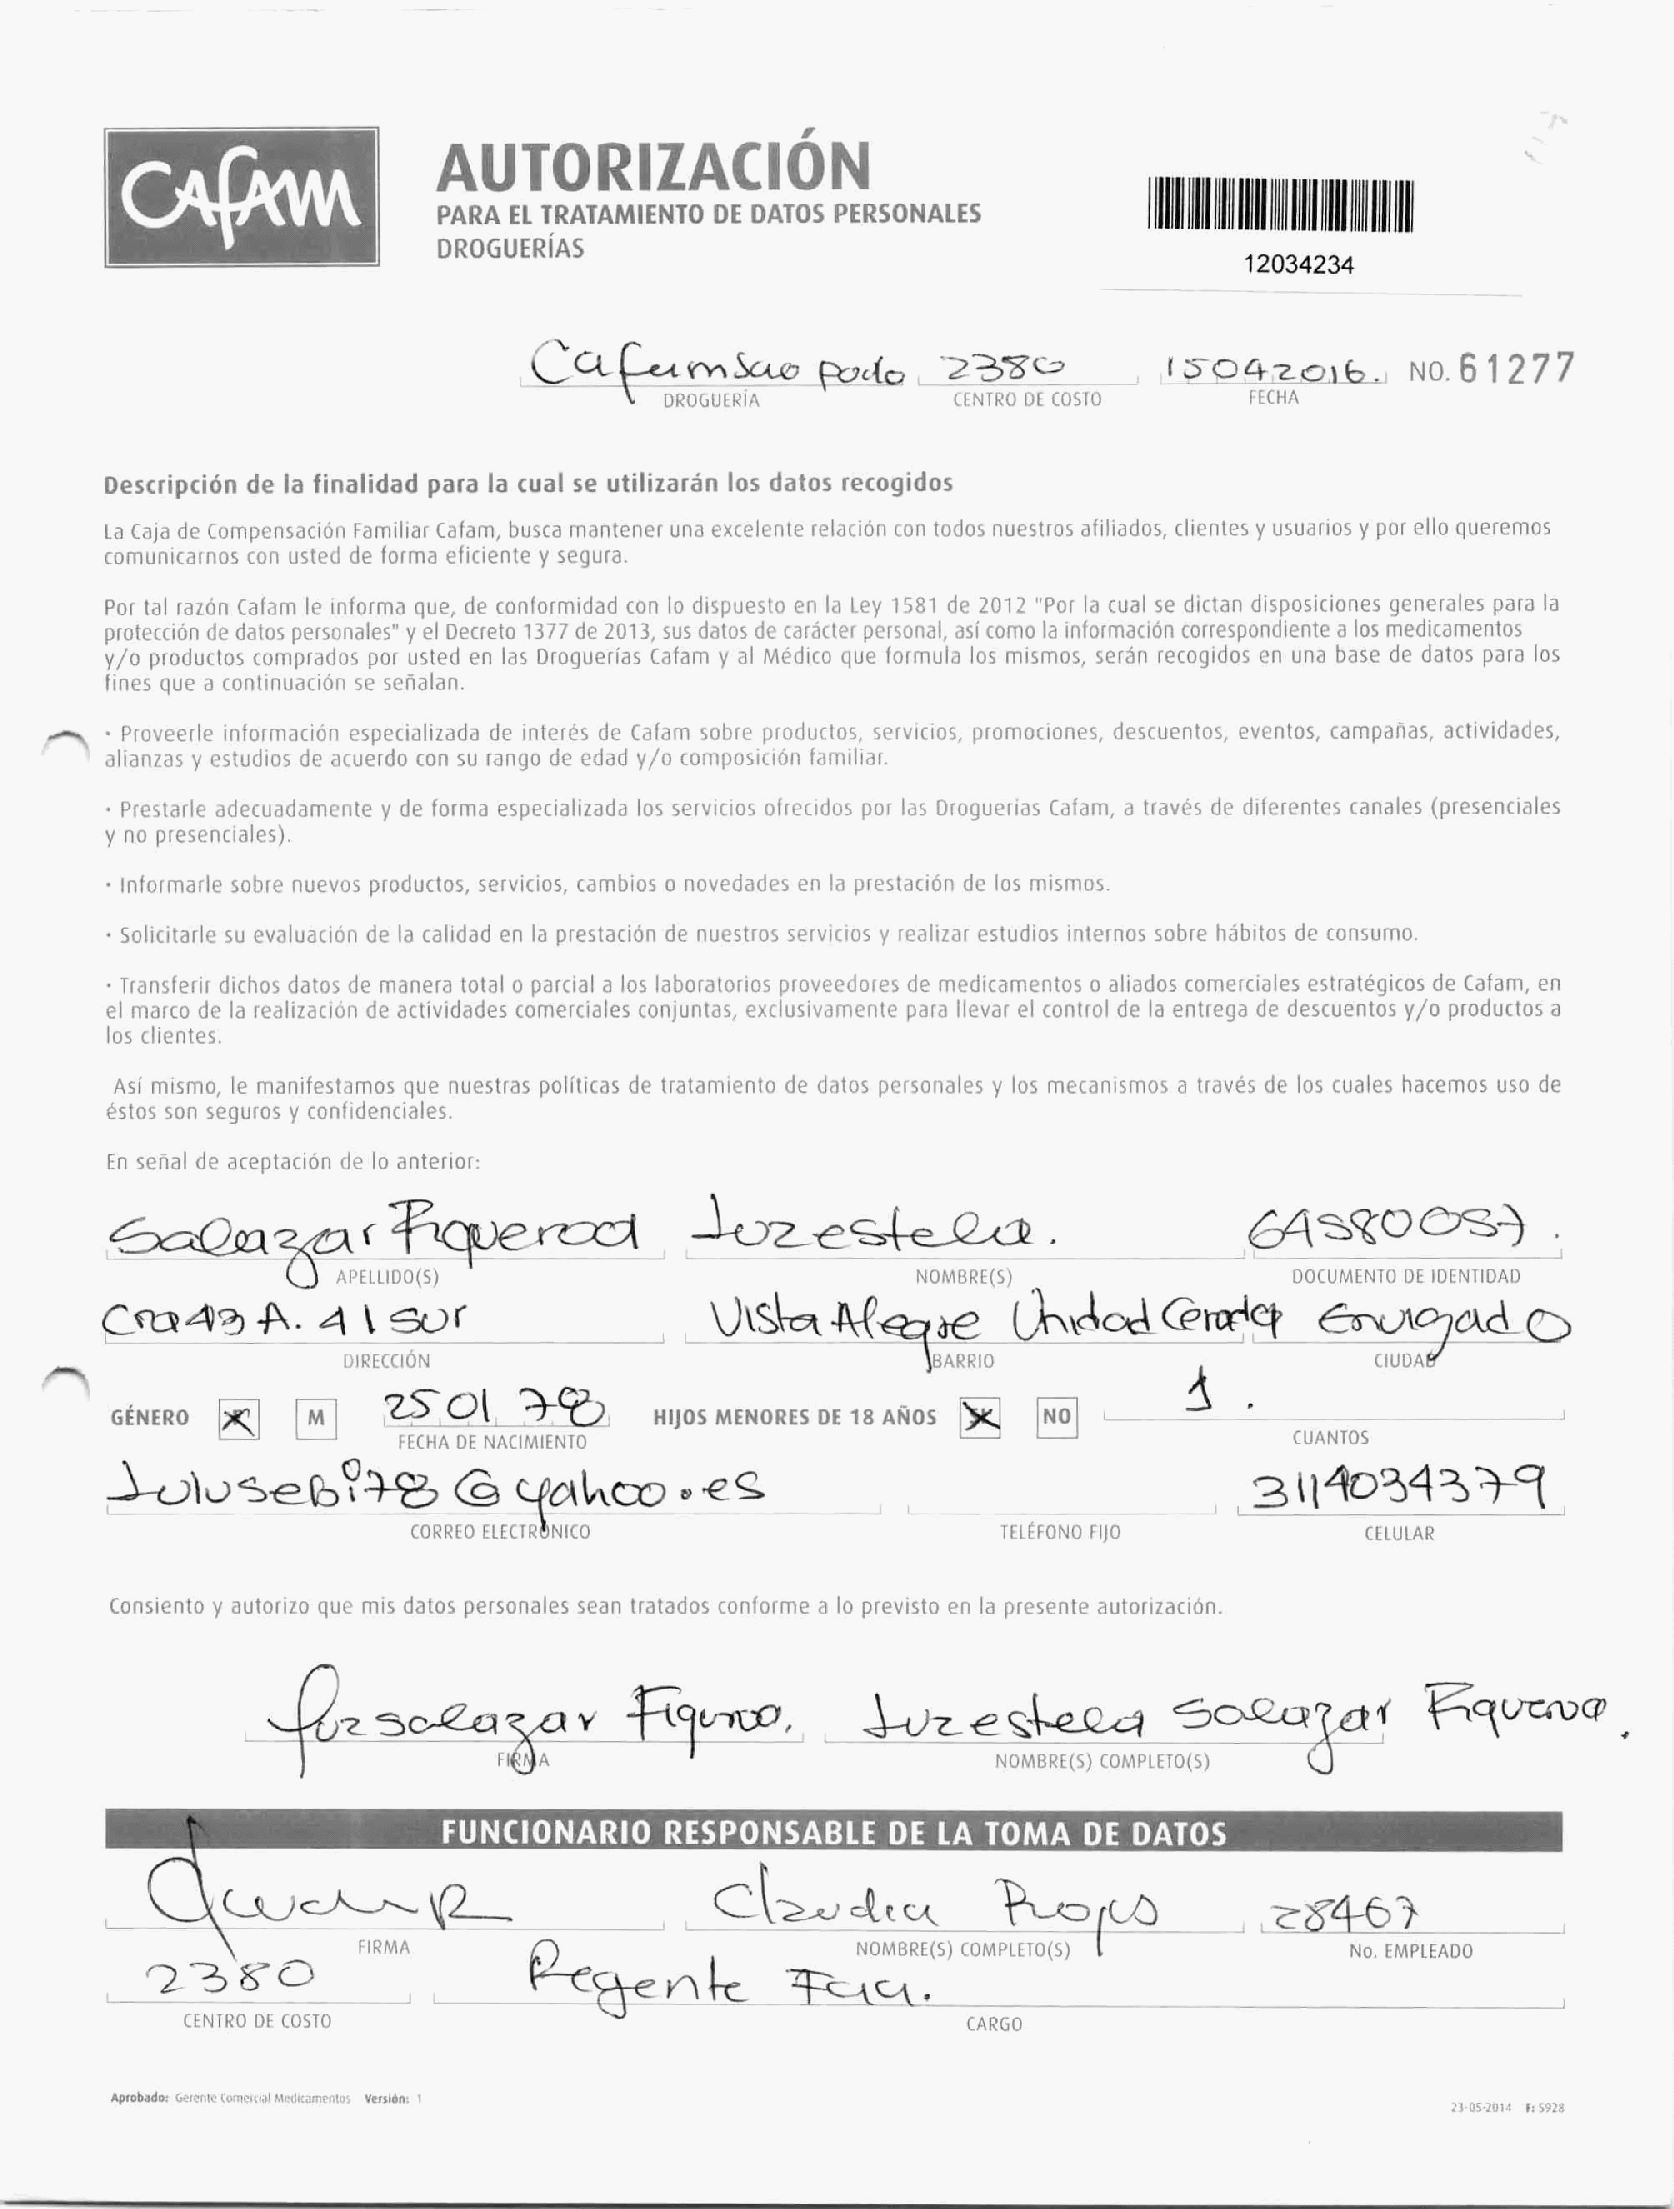 CAFAM
AUTORIZACIÓN
PARA EL TRATAMIENTO DE DATOS PERSONALES
DROGUERÍAS
12034234
Cafam Sao poclo 2380 15042016. NO. 61277
DROGUERÍA CENTRO DE COSTO FECHA
Descripción de la finalidad para la cual se utilizarán los datos recogidos
La Caja de Compensación Familiar Cafam, busca mantener una excelente relación con todos nuestros afiliados, clientes y usuarios y por ello queremos
comunicarnos con usted de forma eficiente y segura.
Por tal razón Cafam le informa que, de conformidad con lo dispuesto en la Ley 1581 de 2012 "Por la cual se dictan disposiciones generales para la
protección de datos personales" y el Decreto 1377 de 2013, sus datos de carácter personal, así como la información correspondiente a los medicamentos
y/o productos comprados por usted en las Droguerías Cafam y al Médico que formula los mismos, serán recogidos en una base de datos para los
fines que a continuación se señalan.
· Proveerle información especializada de interés de Cafam sobre productos, servicios, promociones, descuentos, eventos, campañas, actividades,
alianzas y estudios de acuerdo con su rango de edad y/o composición familiar.
· Prestarle adecuadamente y de forma especializada los servicios ofrecidos por las Droguerías Cafam, a través de diferentes canales (presenciales
y no presenciales).
· Informarle sobre nuevos productos, servicios, cambios o novedades en la prestación de los mismos.
· Solicitarle su evaluación de la calidad en la prestación de nuestros servicios y realizar estudios internos sobre hábitos de consumo.
· Transferir dichos datos de manera total o parcial a los laboratorios proveedores de medicamentos o aliados comerciales estratégicos de Cafam, en
el marco de la realización de actividades comerciales conjuntas, exclusivamente para llevar el control de la entrega de descuentos y/o productos a
los clientes.
Así mismo, le manifestamos que nuestras políticas de tratamiento de datos personales y los mecanismos a través de los cuales hacemos uso de
éstos son seguros y confidenciales.
En señal de aceptación de lo anterior:
Salazar Figueroa Luzestela. 64580057.
APELLIDO(S) NOMBRE(S) DOCUMENTO DE IDENTIDAD
Cra 43 A. 41 SUr Vista Alegre Unidad Cerrada Envigado
DIRECCIÓN BARRIO CIUDAD
GÉNERO X M 25 01 78 HIJOS MENORES DE 18 AÑOS X NO 1.
FECHA DE NACIMIENTO CUANTOS
Lulusebi78@yahoo.es 3114034379
CORREO ELECTRÓNICO TELÉFONO FIJO CELULAR
Consiento y autorizo que mis datos personales sean tratados conforme a lo previsto en la presente autorización.
Luzsalazar Figueroa. Luzestela Salazar Figueroa.
FIRMA NOMBRE(S) COMPLETO(S)
FUNCIONARIO RESPONSABLE DE LA TOMA DE DATOS
Claudia Rojas 28467
FIRMA NOMBRE(S) COMPLETO(S) No. EMPLEADO
2380 Regente Fcia.
CENTRO DE COSTO CARGO
Aprobado: Gerente Comercial Medicamentos Versión: 1
23-05-2014 F: 5928